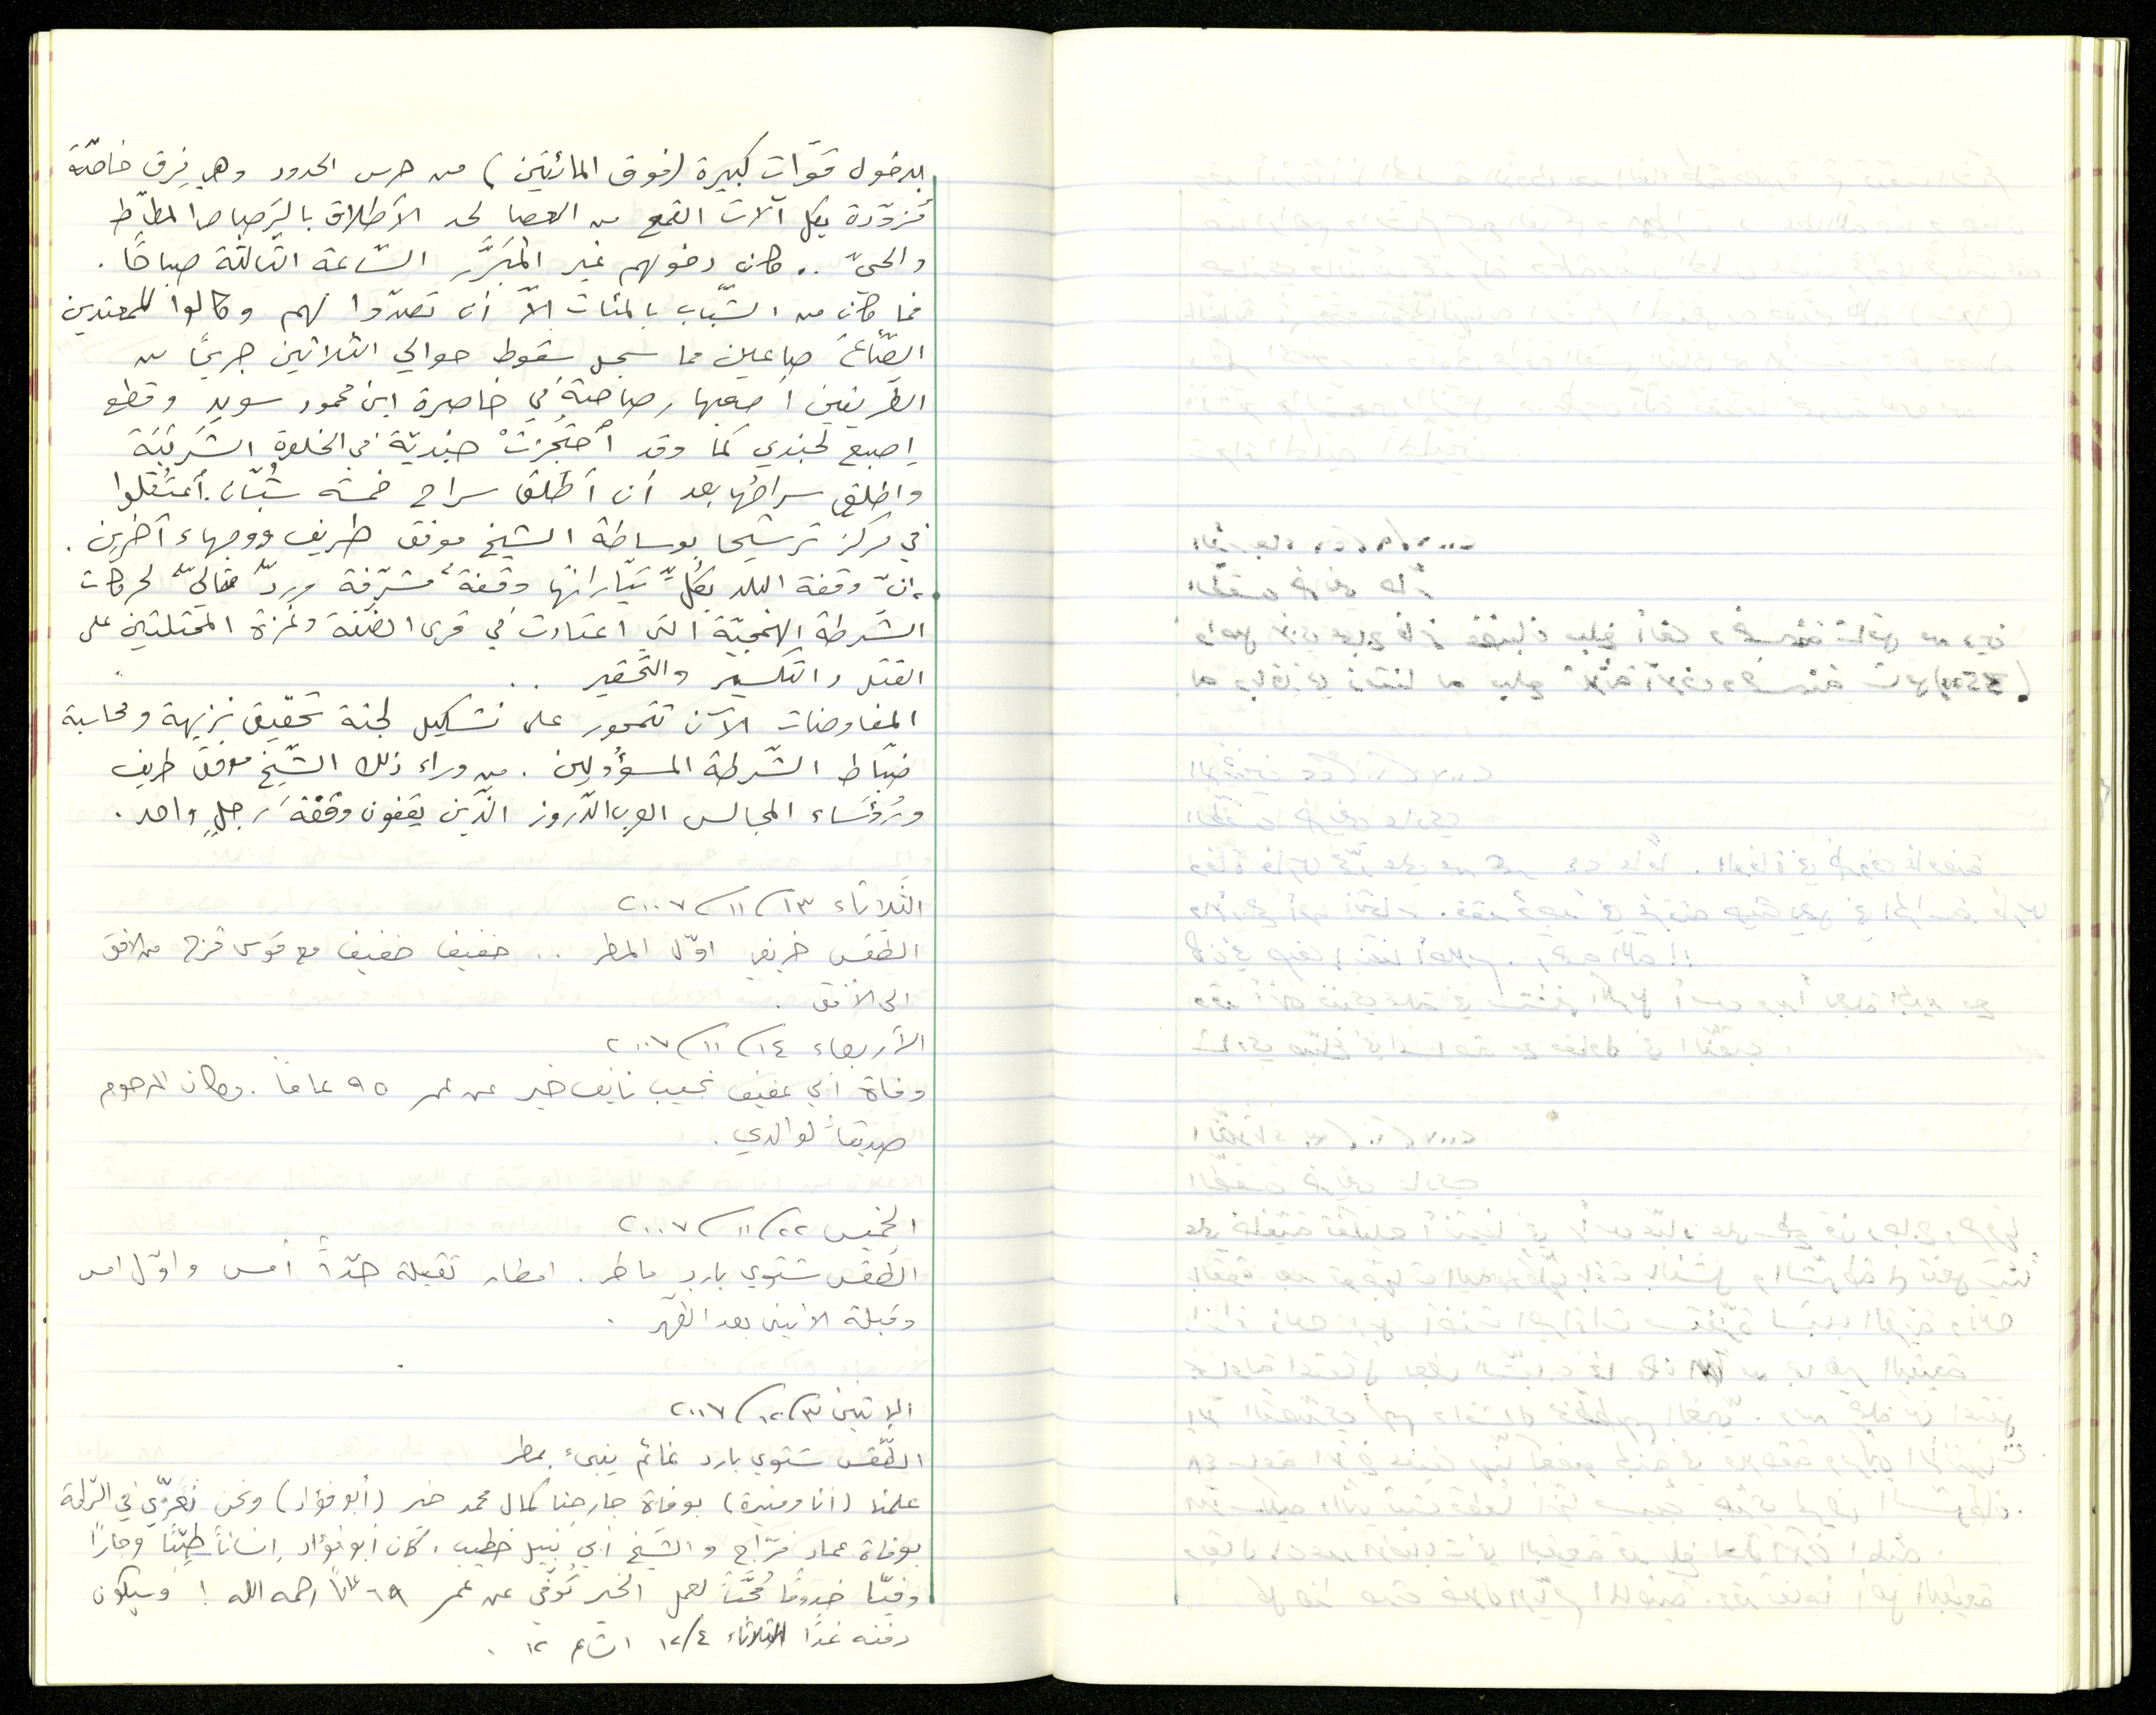 بدخول قوّات كبيرة (فوق المائتين) من حرس الحدود وهي فِرق خاصّة
مُزوّدة بكل آلات القمع من العصا لحد الأطلاق بالرّصاص المطّاط
والحيّ .. وكان دخولهم غير المبَرَّر السّاعة الثّالثة صباحًا .
فما كان من الشّباب بالمئات الاّ أن تصدّوا لهم وكالوا للمعتدين
الصّاعَ صاعين مما سجل سقوط حوالي الثلاثين جريحًا من
الطّرفين أصعبها رصاصة في خاصرة ابن محمود سويد وقطع
إصبع لجندي كما وقد أُحتُجِزتْ جنديّة في الخلوة الشّرقيّة
واطلق سراحُها بعد أن أُطلق سراح خمسة شُبّان أُعتُقلوا
في مركز ترشيحا بوساطة الشيخ موفق طريف ووجهاء آخرين .
إنّ وقفة البلد بكلّ تيّاراتها وقفةٌ مشرّفة وردّ مثاليّ لحركات
الشّرطة الهمجيّة التي اعتادت في قرى الضّفّة وغزة المحتلتين على
القتل والتكسير والتّحقير ..
المفاوضات الآن تتمحور على تشكيل لجنة تحقيق نزيهة ومحاسبة
ضبّاط الشّرطة المسؤولين . من وراء ذلك الشّيخ موفق طريف
ورؤساء المجالس العرب الدّروز الذين يقفون وقفةَ رجلٍ واحد .
الثّلاثاء ١٣/١١/٢٠٠٧
الطّقس خريفي اوّل المطر .. خفيف خفيف مع قوس قزح من الافق
الى الأفق .
الأربعاء ١٤/١١/٢٠٠٧
وفاة أبي عفيف نجيب نايف خير عن عمر ٩٥ عامًا . وكان المرحوم
صديقاً لوالدي .
الخميس ٢٢/١١/٢٠٠٧
الطّقس شتوي بارد ماطر . امطار ثقيلة جدّاً أمس واوّل امس
وقبله الاثنين بعد الظّهر .
الإثنين ٣/١٢/٢٠٠٧
الطّقس شتوي بارد غائم ينبىء بمطر
علمنا (أنا ومنيرة) بوفاة جارنا كمال محمد خير (أبو فؤاد) ونحن نُعزّي في الرّامة
بوفاة عماد فرّاج والشّيخ أبي نبيل خطيب . كان أبو فؤاد إنساناً طيّبًا وجارًا
وفيًّا خدومًا مُحبًّا لعمل الخير تُوفّي عن عمر ٦٩ عامًا رحمه الله ! وسيكون
دفنه غدًا الثلاثاء ١٢/٤ السّاعة ١٢ .